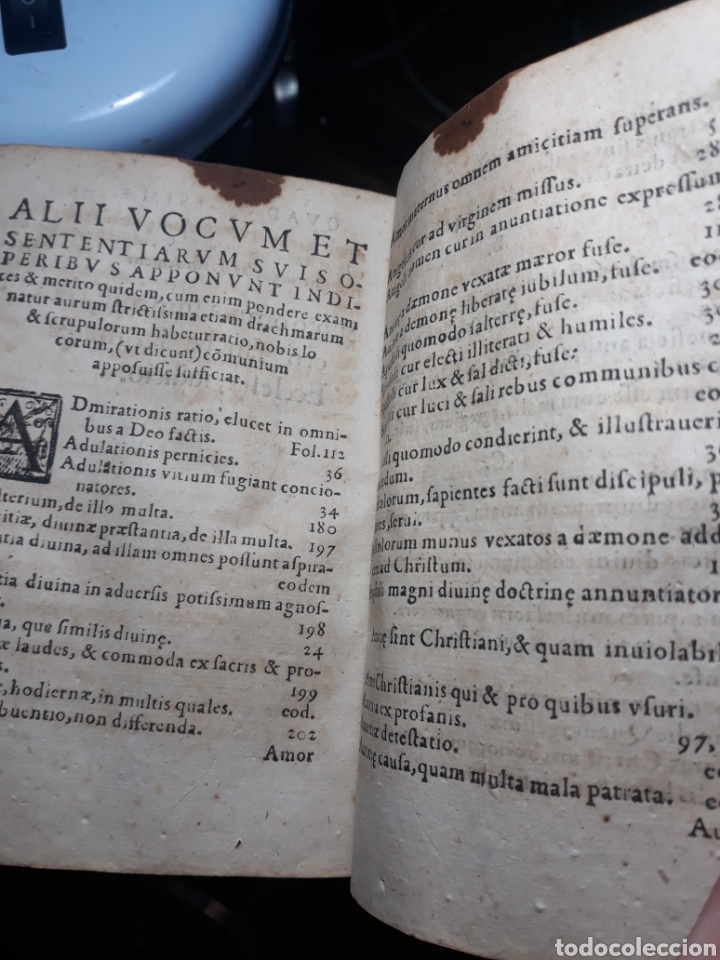 ALII VOCVM ET
SENTENTIARVM SVIS O-
PERIBVS APPONVNT INDI-
ces & merito quidem, cum enim pondere exami
natur aurum ſtrictiſsima etiam drachmarum
& ſcrupulorum habetur ratio, nobis lo
corum, (vt dicunt) cõmunium
appoſuiſſe ſufficiat.
ADmirationis ratio, elucet in omni-
bus a Deo factis. Fol. 112
Adulationis pernicies. 36
Adulationis vitium fugiant concio-
natores. 34
lterium, de illo multa. 180
itiæ, diuinæ præſtantia, de illa multa. 197
ntia diuina, ad illam omnes poſſunt aſpira-
eodem
tia diuina in aduerſis potiſsimum agnoſ-
198
na, que ſimilis diuinę. 24
æ laudes, & commoda ex ſacris & pro-
s. 199
æ, hodiernæ, in multis quales. eod.
buentio, non differenda. 202
Amor
Amor maternus omnem amicitiam ſuperans. 5
cur ad virginem miſſus. 28
nomen cur in anuntiatione expreſſum
28
a dæmone vexatæ mæror fuſe. 11
a demone liberatę iubilum, fuſe. eod
quomodo ſalterrę, fuſe.
cur electi illiterati & humiles.
cur lux & ſal dicti, fuſe.
cur luci & ſali rebus communibus c
quomodo condierint, & illuſtraueri
ndum. 39
olorum, ſapientes facti ſunt diſcipuli, p
res, ſerui. 3
olorum munus vexatos a dæmone add
ad Chriſtum. 1
magni diuinę doctrinę annuntiator
ſint Chriſtiani, & quam inuiolabil
Chriſtianis qui & pro quibus vſuri.
ex profanis. 97,
deteſtatio. eo
cauſa, quam multa mala patrata. eo
Au
todocoleccion